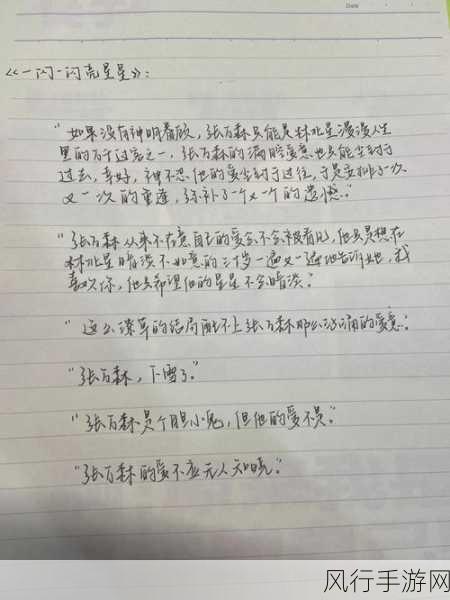 Date
《一闪一闪亮星星》:
“如果没有神明眷顾, 张万森只能是林北星漫漫人生
里的万千过客之一, 张万森的满腔爱意也只能尘封于
过去, 幸好, 神不忍他的爱尘封于过往, 于是安排了一次
又一次的重逢, 弥补了一个又一个的遗憾。”
“张万森从来不在意自己的爱会不会被看见, 他只是想在
林北星暗淡不如意的三十岁一遍又一遍地告诉她, 我
喜欢你, 他只希望他的星星不会暗淡。”
“这么潦草的结局配不上张万森那么汹涌的爱意。”
“张万森, 下雪了。”
“张万森是个胆小鬼, 但他的爱不是。”
“张万森的爱不应无人知晓。”
风行手游网